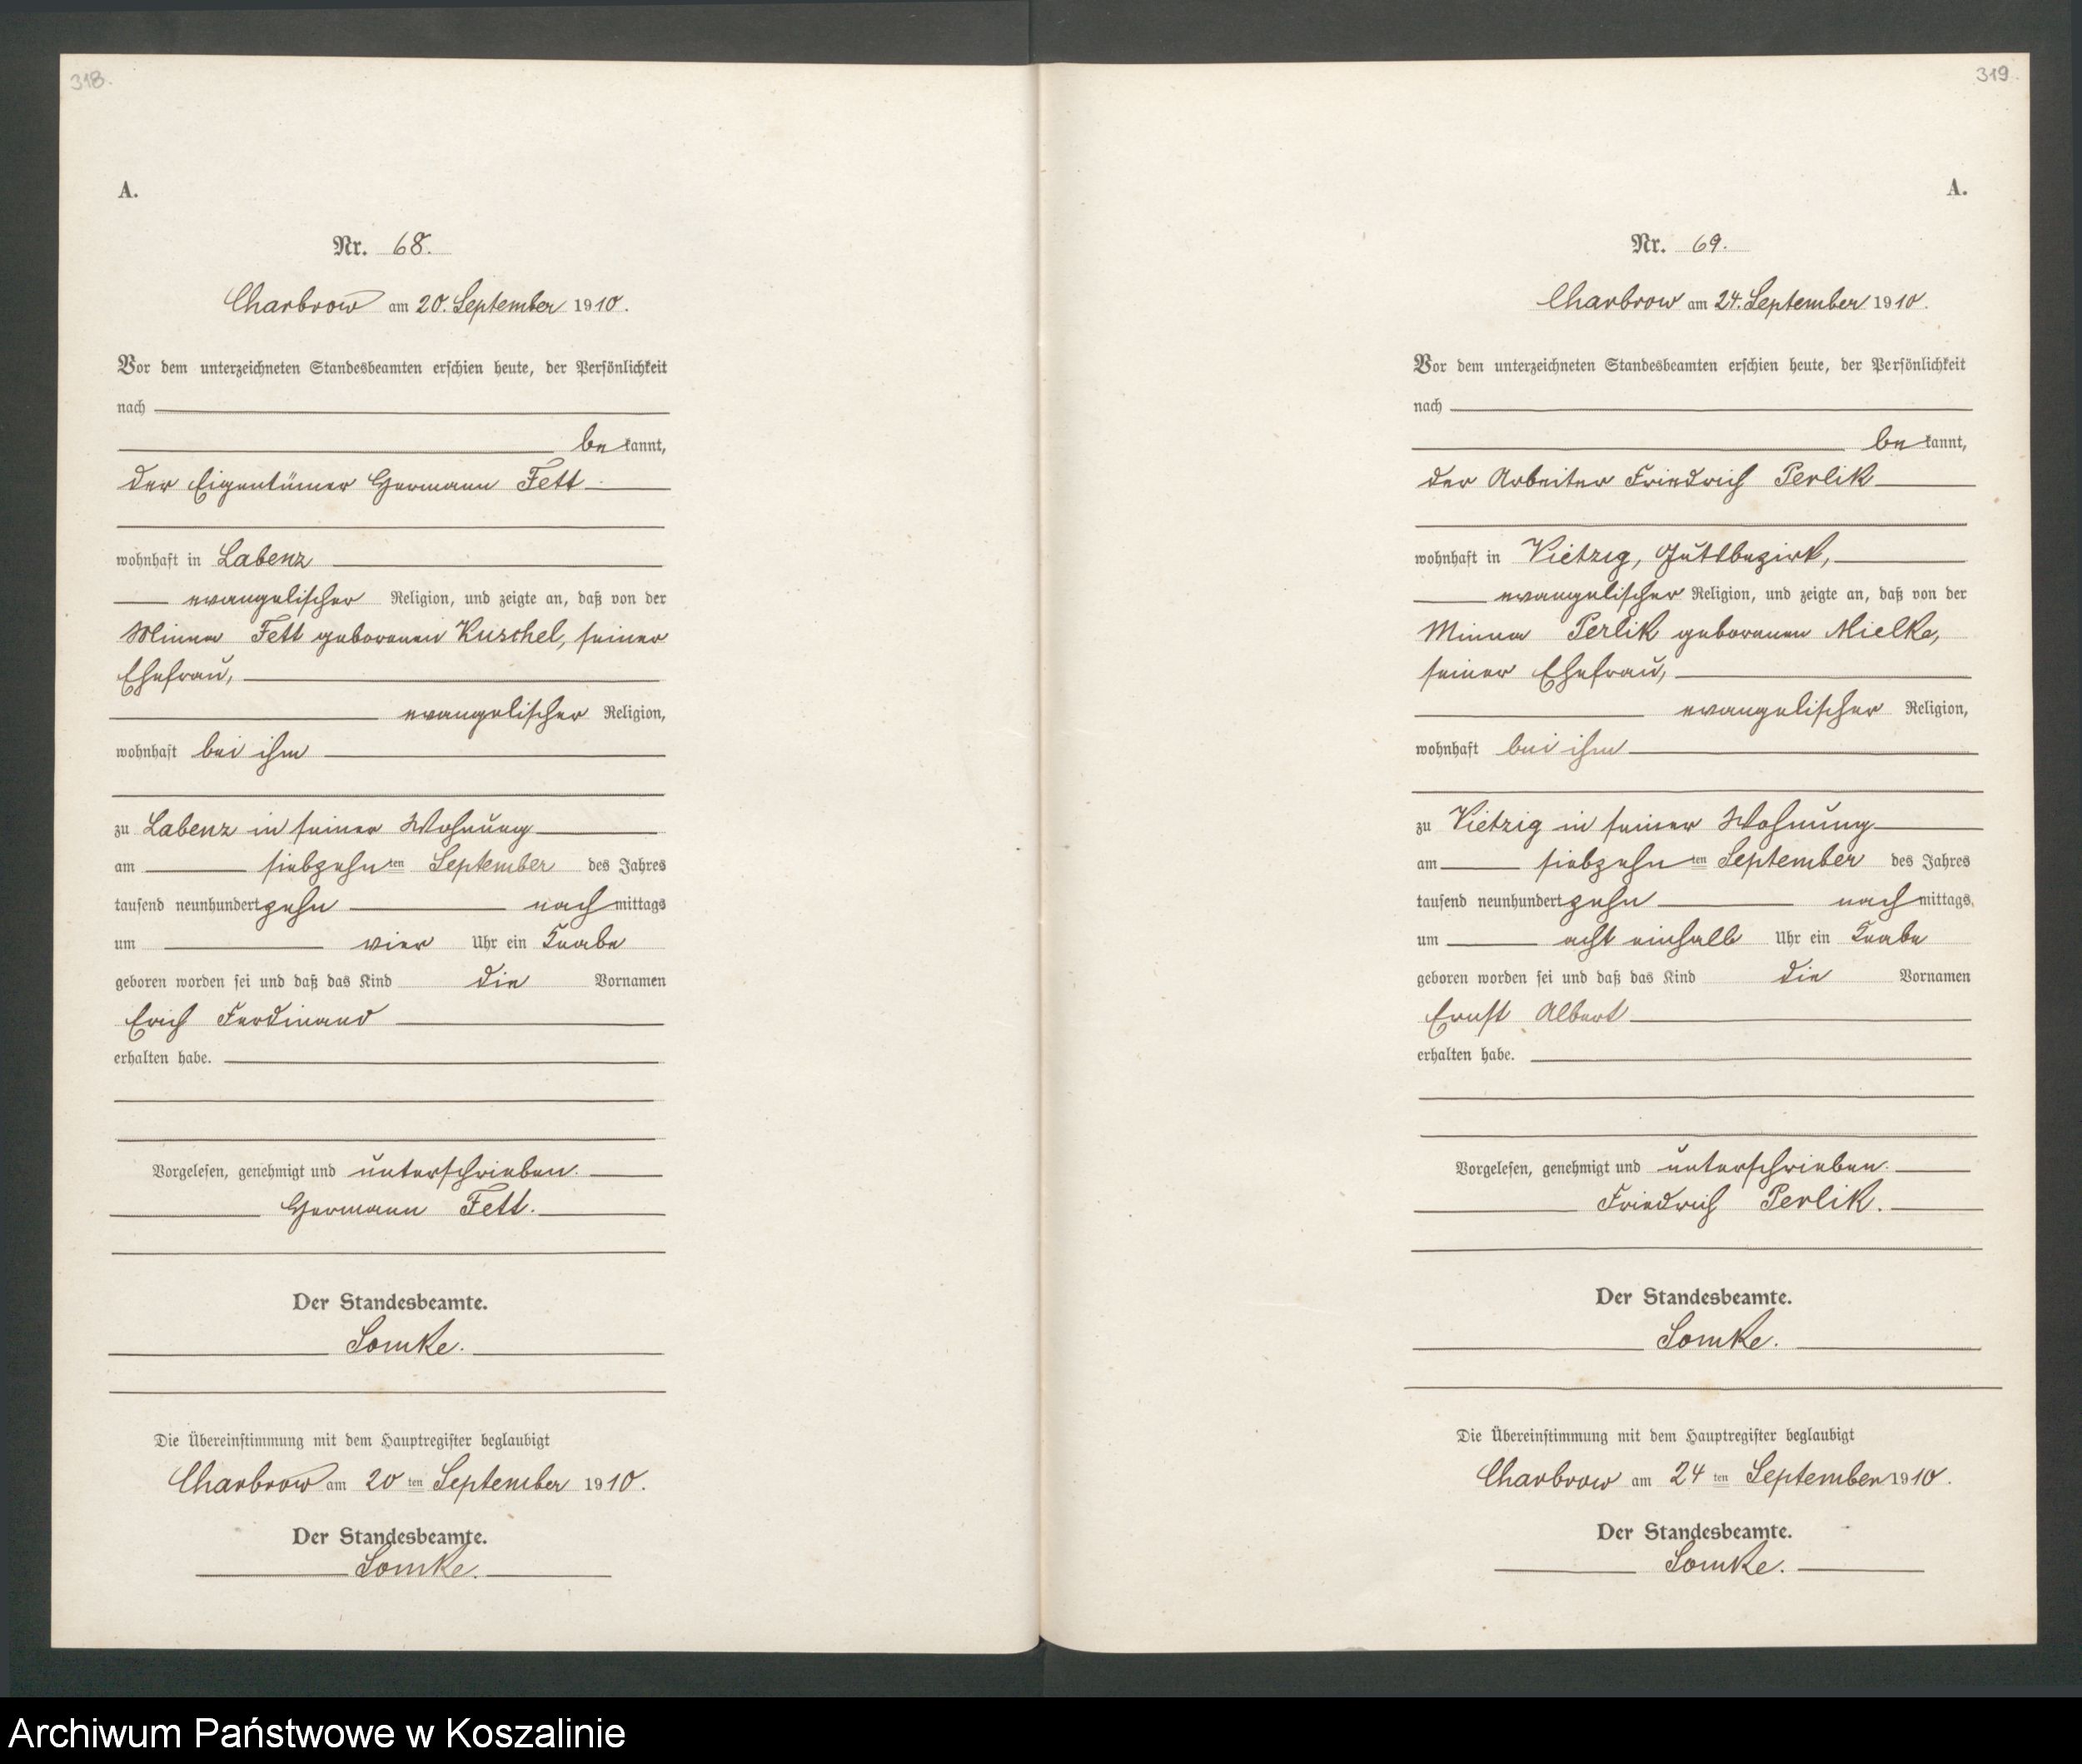 318.
A.
Nr. 68.
Charbrow am 20. September 1910.
Vor dem unterzeichneten Standesbeamten erschien heute, der Persönlichkeit
nach
be kannt,
der Eigentümer Hermann Fett
wohnhaft in Labenz
evangelischer Religion, und zeigte an, daß von der
Minna Fett geborenen Kuschel, seiner
Ehefrau,
evangelischer Religion,
wohnhaft bei ihm
zu Labenz in seiner Wohnung
am siebzehn ten September des Jahres
tausend neunhundert zehn nach mittags
um vier Uhr ein Knabe
geboren worden sei und daß das Kind die Vornamen
Erich Ferdinand
erhalten habe.
Vorgelesen, genehmigt und unterschrieben.
Hermann Fett.
Der Standesbeamte.
Somke.
Die Übereinstimmung mit dem Hauptregister beglaubigt
Charbrow am 20 ten September 1910.
Der Standesbeamte.
Somke.
319.
A.
Nr. 69.
Charbrow am 24. September 1910.
Vor dem unterzeichneten Standesbeamten erschien heute, der Persönlichkeit
nach
be kannt,
der Arbeiter Friedrich Perlik
wohnhaft in Vietzig, Gutsbezirk,
evangelischer Religion, und zeigte an, daß von der
Minna Perlik geborenen Mielke,
seiner Ehefrau,
evangelischer Religion,
wohnhaft bei ihm
zu Vietzig in seiner Wohnung
am siebzehn ten September des Jahres
tausend neunhundert zehn nach mittags
um acht einhalb Uhr ein Knabe
geboren worden sei und daß das Kind die Vornamen
Ernst Albert
erhalten habe.
Vorgelesen, genehmigt und unterschrieben.
Friedrich Perlik.
Der Standesbeamte.
Somke.
Die Übereinstimmung mit dem Hauptregister beglaubigt
Charbrow am 24 ten September 1910.
Der Standesbeamte.
Somke.
Archiwum Państwowe w Koszalinie